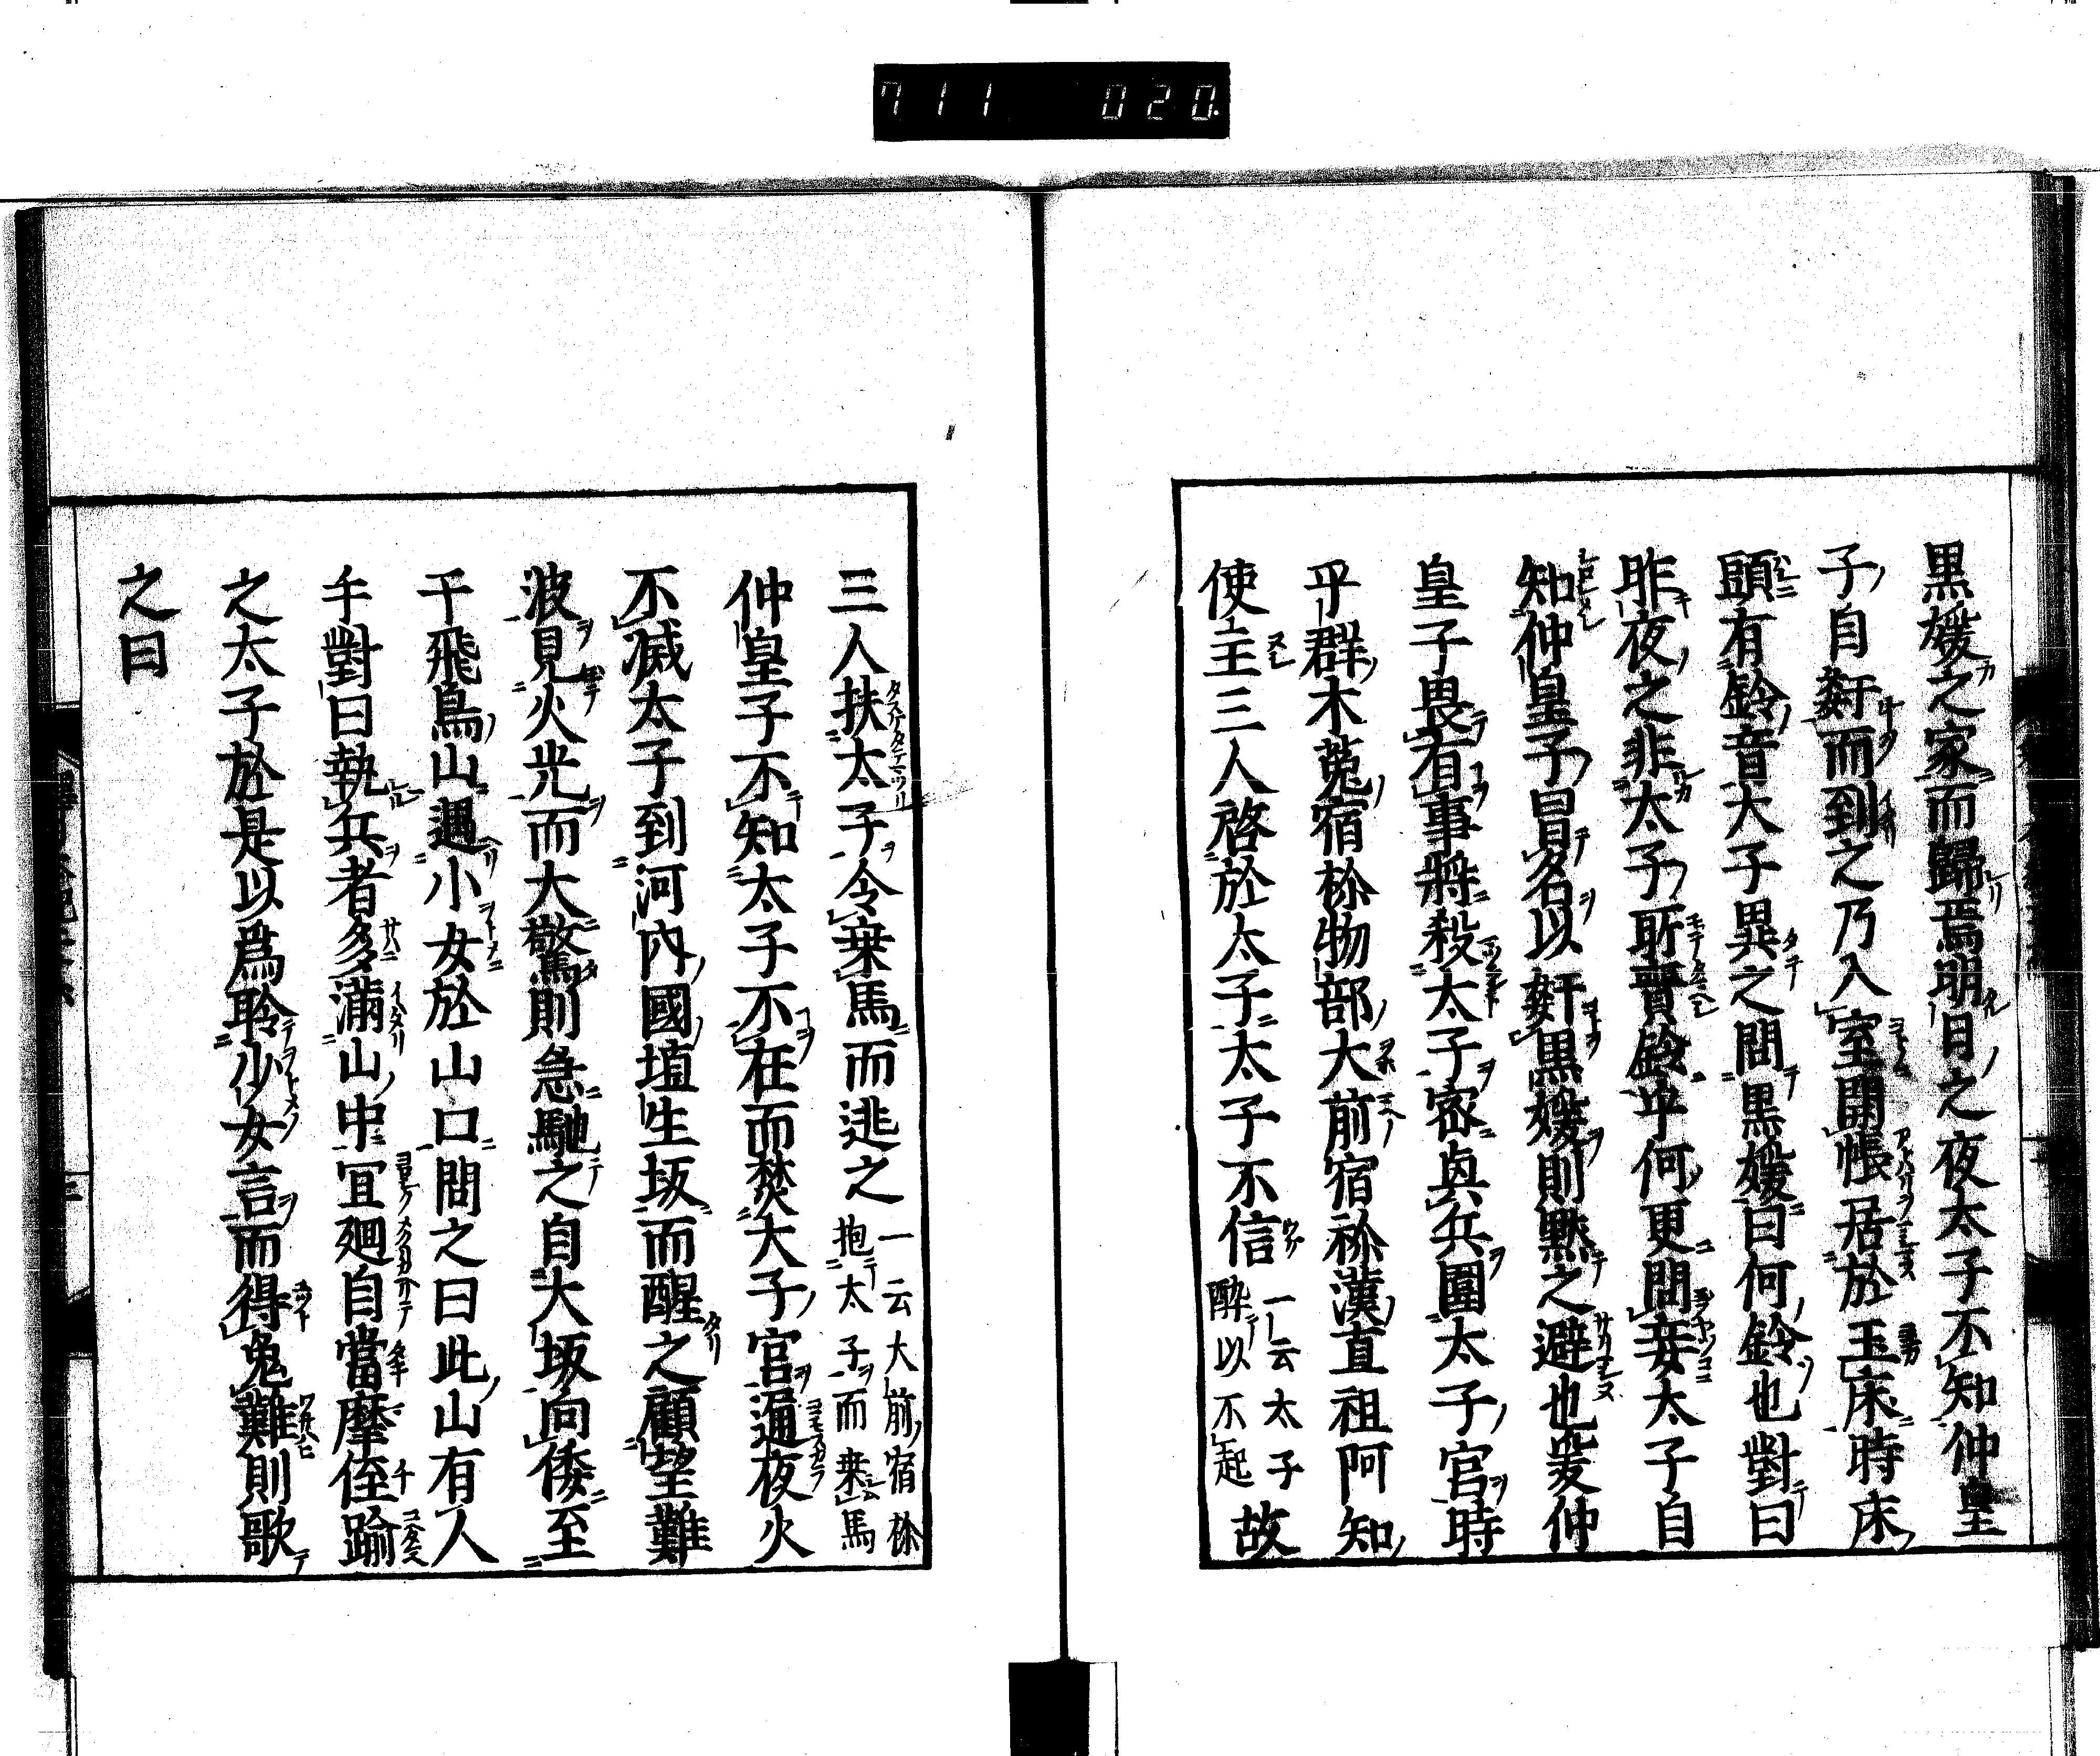 711 020
黒媛之家而歸焉明日之夜太子不知仲皇
子自姧而到之乃入室開帳居於玉床時床
頭有鈴音大子異之問黒媛曰何鈴也對曰
昨夜之非太子所賷鈴乎何更問妾太子自
知仲皇子冒名以姧黒媛則黙之避也爰仲
皇子畏有事將殺太子宻興兵圍太子宮時
平群木菟宿祢物部大前宿祢漢直祖阿知
使主三人啓於太子太子不信一云太子醉以不起故
三人扶太子令乗馬而逃之一云大前宿祢抱太子而乗馬
仲皇子不知太子不在而焚大子宮通夜火
不滅太子到河内國埴生坂而醒之顧望難
波見火光而大驚則急馳之自大坂向倭至
于飛鳥山遇小女於山口問之曰此山有人
乎對曰執兵者多滿山中宜廻自當摩徑踰
之太子於是以爲聆少女言而得免難則歌
之曰